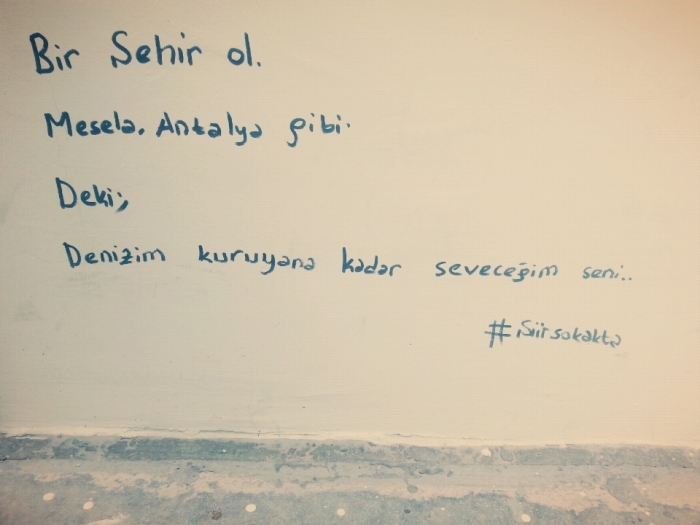 Bir Sehir ol.
Mesela. Antalya gibi.
Deki;
Denizim kuruyana kadar seveceğim seni..
#siirsokakta